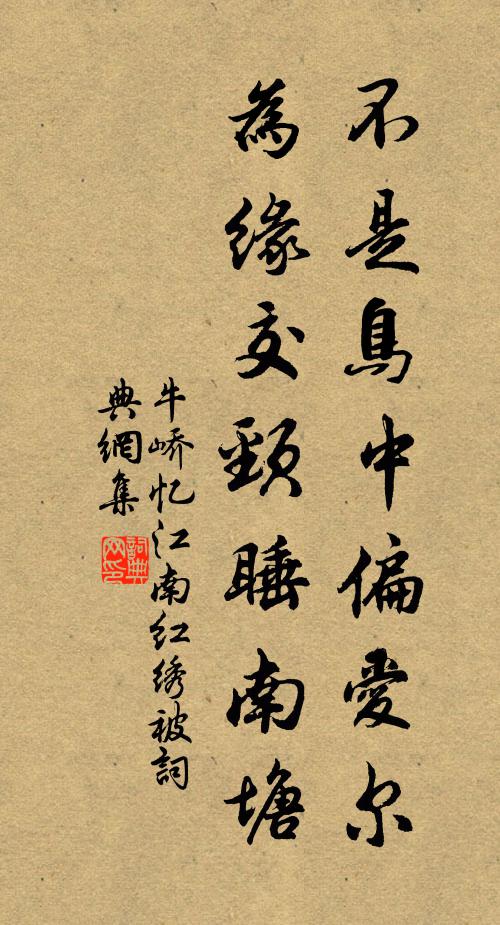 不是鳥中偏愛尔
為緣交頸睡南塘
牛嶠忆江南红绣被詞
典網集
詞典网印